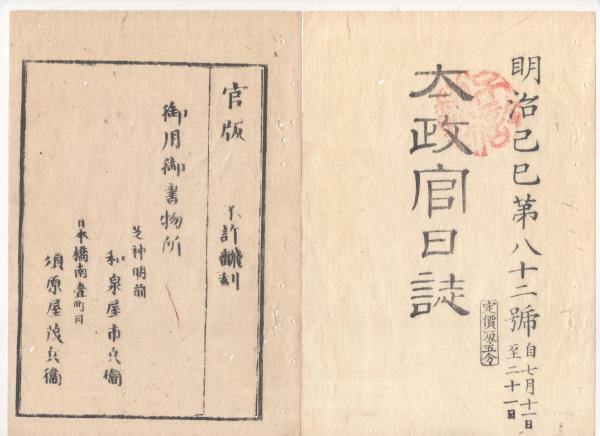 明治己巳第八十二號
自七月十一日
至二十一日
太政官日誌
定價
官版
不許翻刻
御用御書物所
芝神明前
和泉屋市兵衞
日本橋南壹町目
須原屋茂兵衞